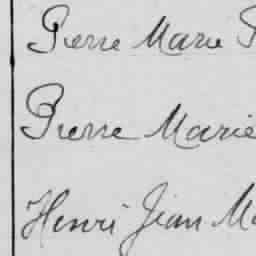 Pierre Marie
Pierre Marie
Henri Jean